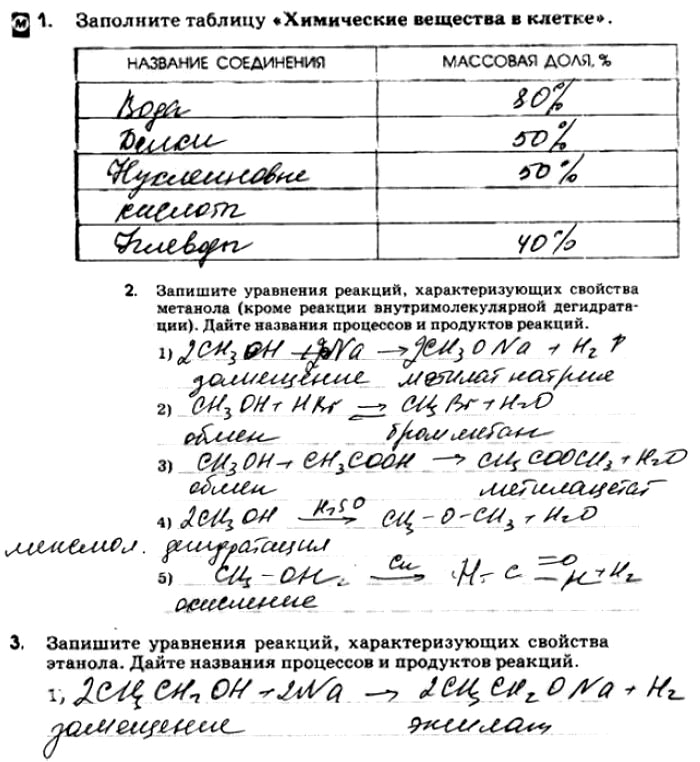 М 1. Заполните таблицу «Химические вещества в клетке».
НАЗВАНИЕ СОЕДИНЕНИЯ МАССОВАЯ ДОЛЯ, %
Вода 80%
Белки 50%
Нуклеиновые 50%
кислоты
Углеводы 40%
2. Запишите уравнения реакций, характеризующих свойства
метанола (кроме реакции внутримолекулярной дегидрата-
ции). Дайте названия процессов и продуктов реакций.
1) 2CH₃OH + 2Na → 2CH₃ONa + H₂ ↑
замещение метилат натрия
2) CH₃OH + HBr ⇌ CH₃Br + H₂O
обмен бромметан
3) CH₃OH + CH₃COOH → CH₃COOCH₃ + H₂O
обмен метилацетат
4) 2CH₃OH H₂SO → CH₃-O-CH₃ + H₂O
межмол. дегидратация
5) CH₃-OH Cu → H-C =O -H + H₂
окисление
3. Запишите уравнения реакций, характеризующих свойства
этанола. Дайте названия процессов и продуктов реакций.
1) 2CH₃CH₂OH + 2Na → 2CH₃CH₂ONa + H₂
замещение этилат